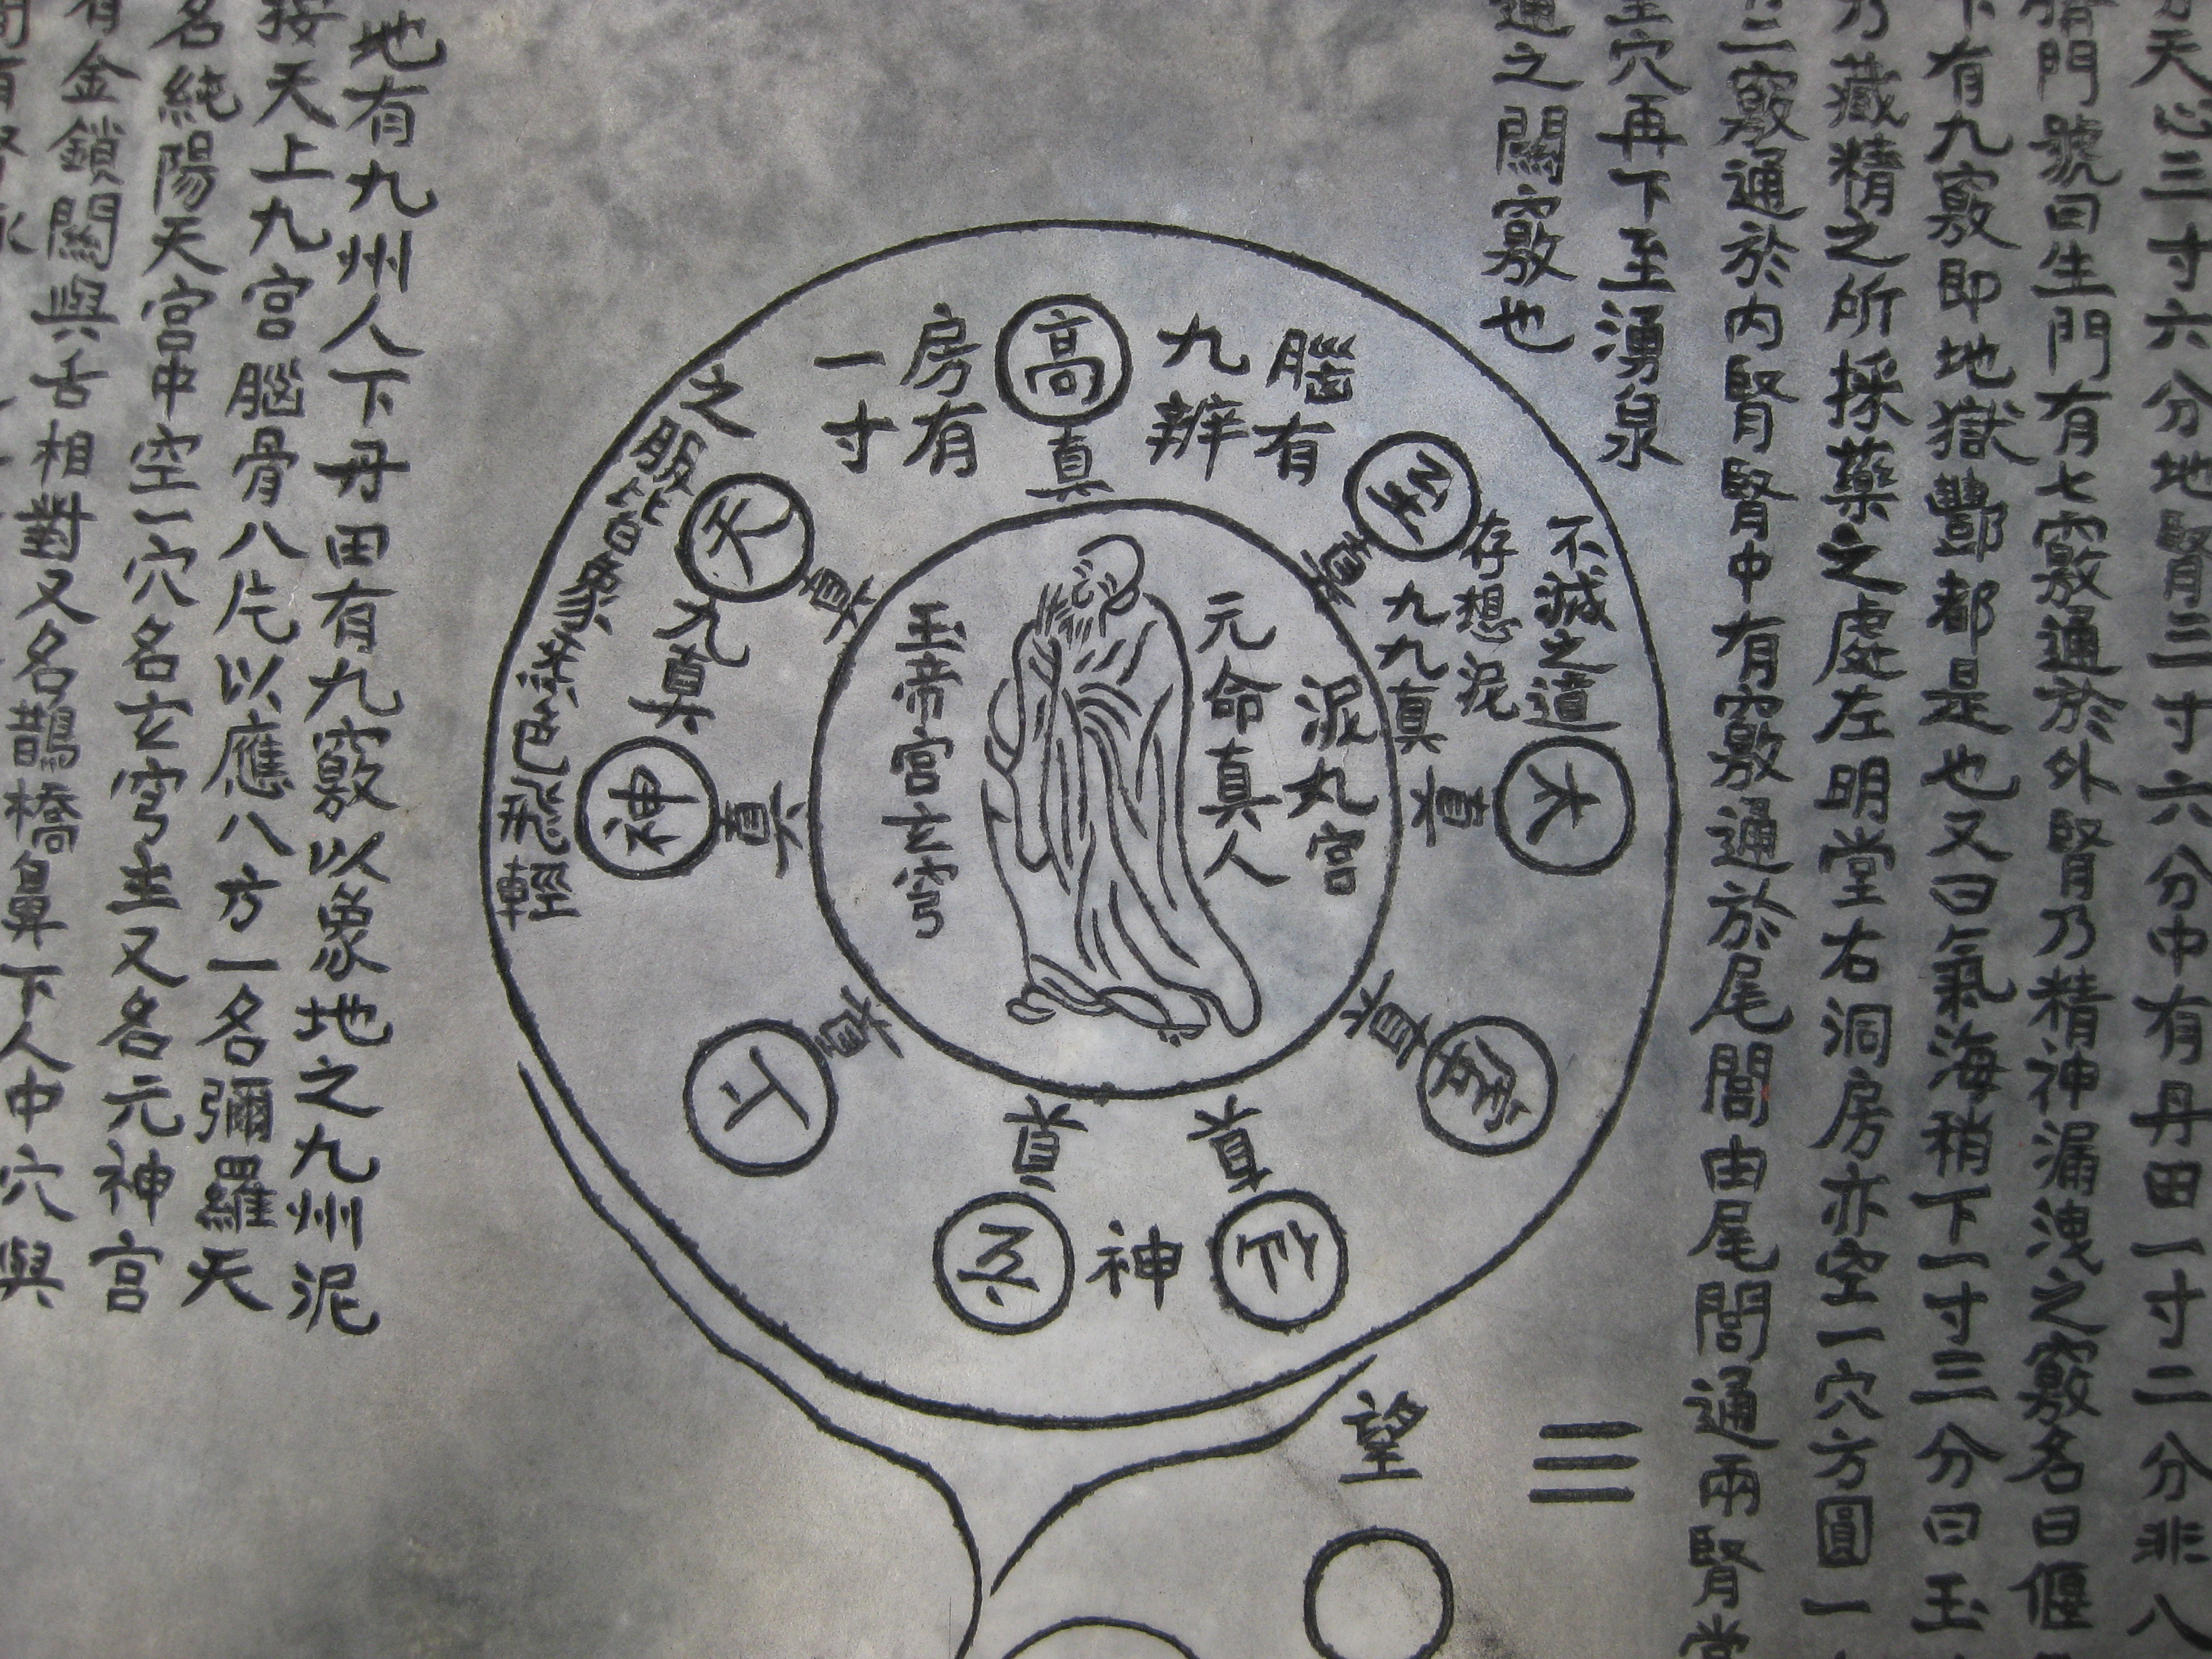 天心三寸六分地腎三寸六分中有丹田一寸二分非八
臍門號曰生門有七竅通於外腎乃精神漏洩之竅名曰偃
下有九竅即地獄酆都是也又曰氣海稍下一寸三分曰玉
乃藏精之所採藥之處左明堂右洞房亦空一穴方圓一
二竅通於內腎腎中有竅通於尾閭由尾閭通兩腎堂
至穴再下至湧泉
通之關竅也
不滅之道
存想泥
九九真
腦有
九辨
房有
一寸
之服皆象
色飛輕
九真
神
高真
至真
太真
真
真
玄真
上真
神真
天真
泥丸宮
元命真人
玉帝宮玄穹
望
三
地有九州人下丹田有九竅以象地之九州泥
按天上九宮腦骨八片以應八方一名彌羅天
名純陽天宮中空一穴名玄穹主又名元神宮
有金鎖關與舌相對又名鵲橋鼻下人中穴與